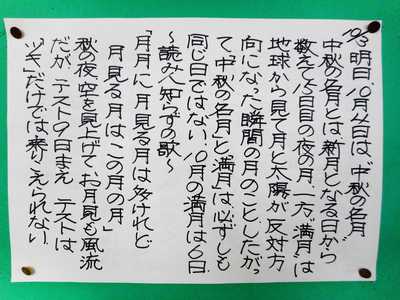 10/3 明日、10月4日は、"中秋の名月"
中秋の名月とは新月となる日から
数えて15日目の夜の月。一方、"満月"は
地球から見て月と太陽が反対方
向になった瞬間の月のこと。したがっ
て"中秋の名月"と"満月"は必ずしも
同じ日ではない。10月の満月は6日。
～読み人知らずの歌～
「月月に月見る月は多けれど
月見る月はこの月の月」
秋の夜空を見上げてお月見も風流
だが、テスト9日まえ テストは
"ツキ"だけでは乗りえられない。